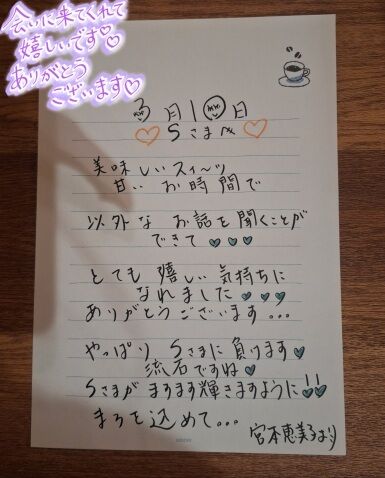 会いに来てくれて
嬉しいです♡
ありがとう
ございます♡
3月10日
♡ Sさまへ ♡
美味しいスイ〜ツ
甘い お時間で
以外な お話を聞くことが
できて♡♡♡
とても 嬉しい 気持ちに
なれました♡♡♡
ありがとうございます...
やっぱり Sさまに 負けます♡
流石ですね♡
Sさまが ますます輝きますように!!♡♡
まろを込めて...
宮本恵美子より